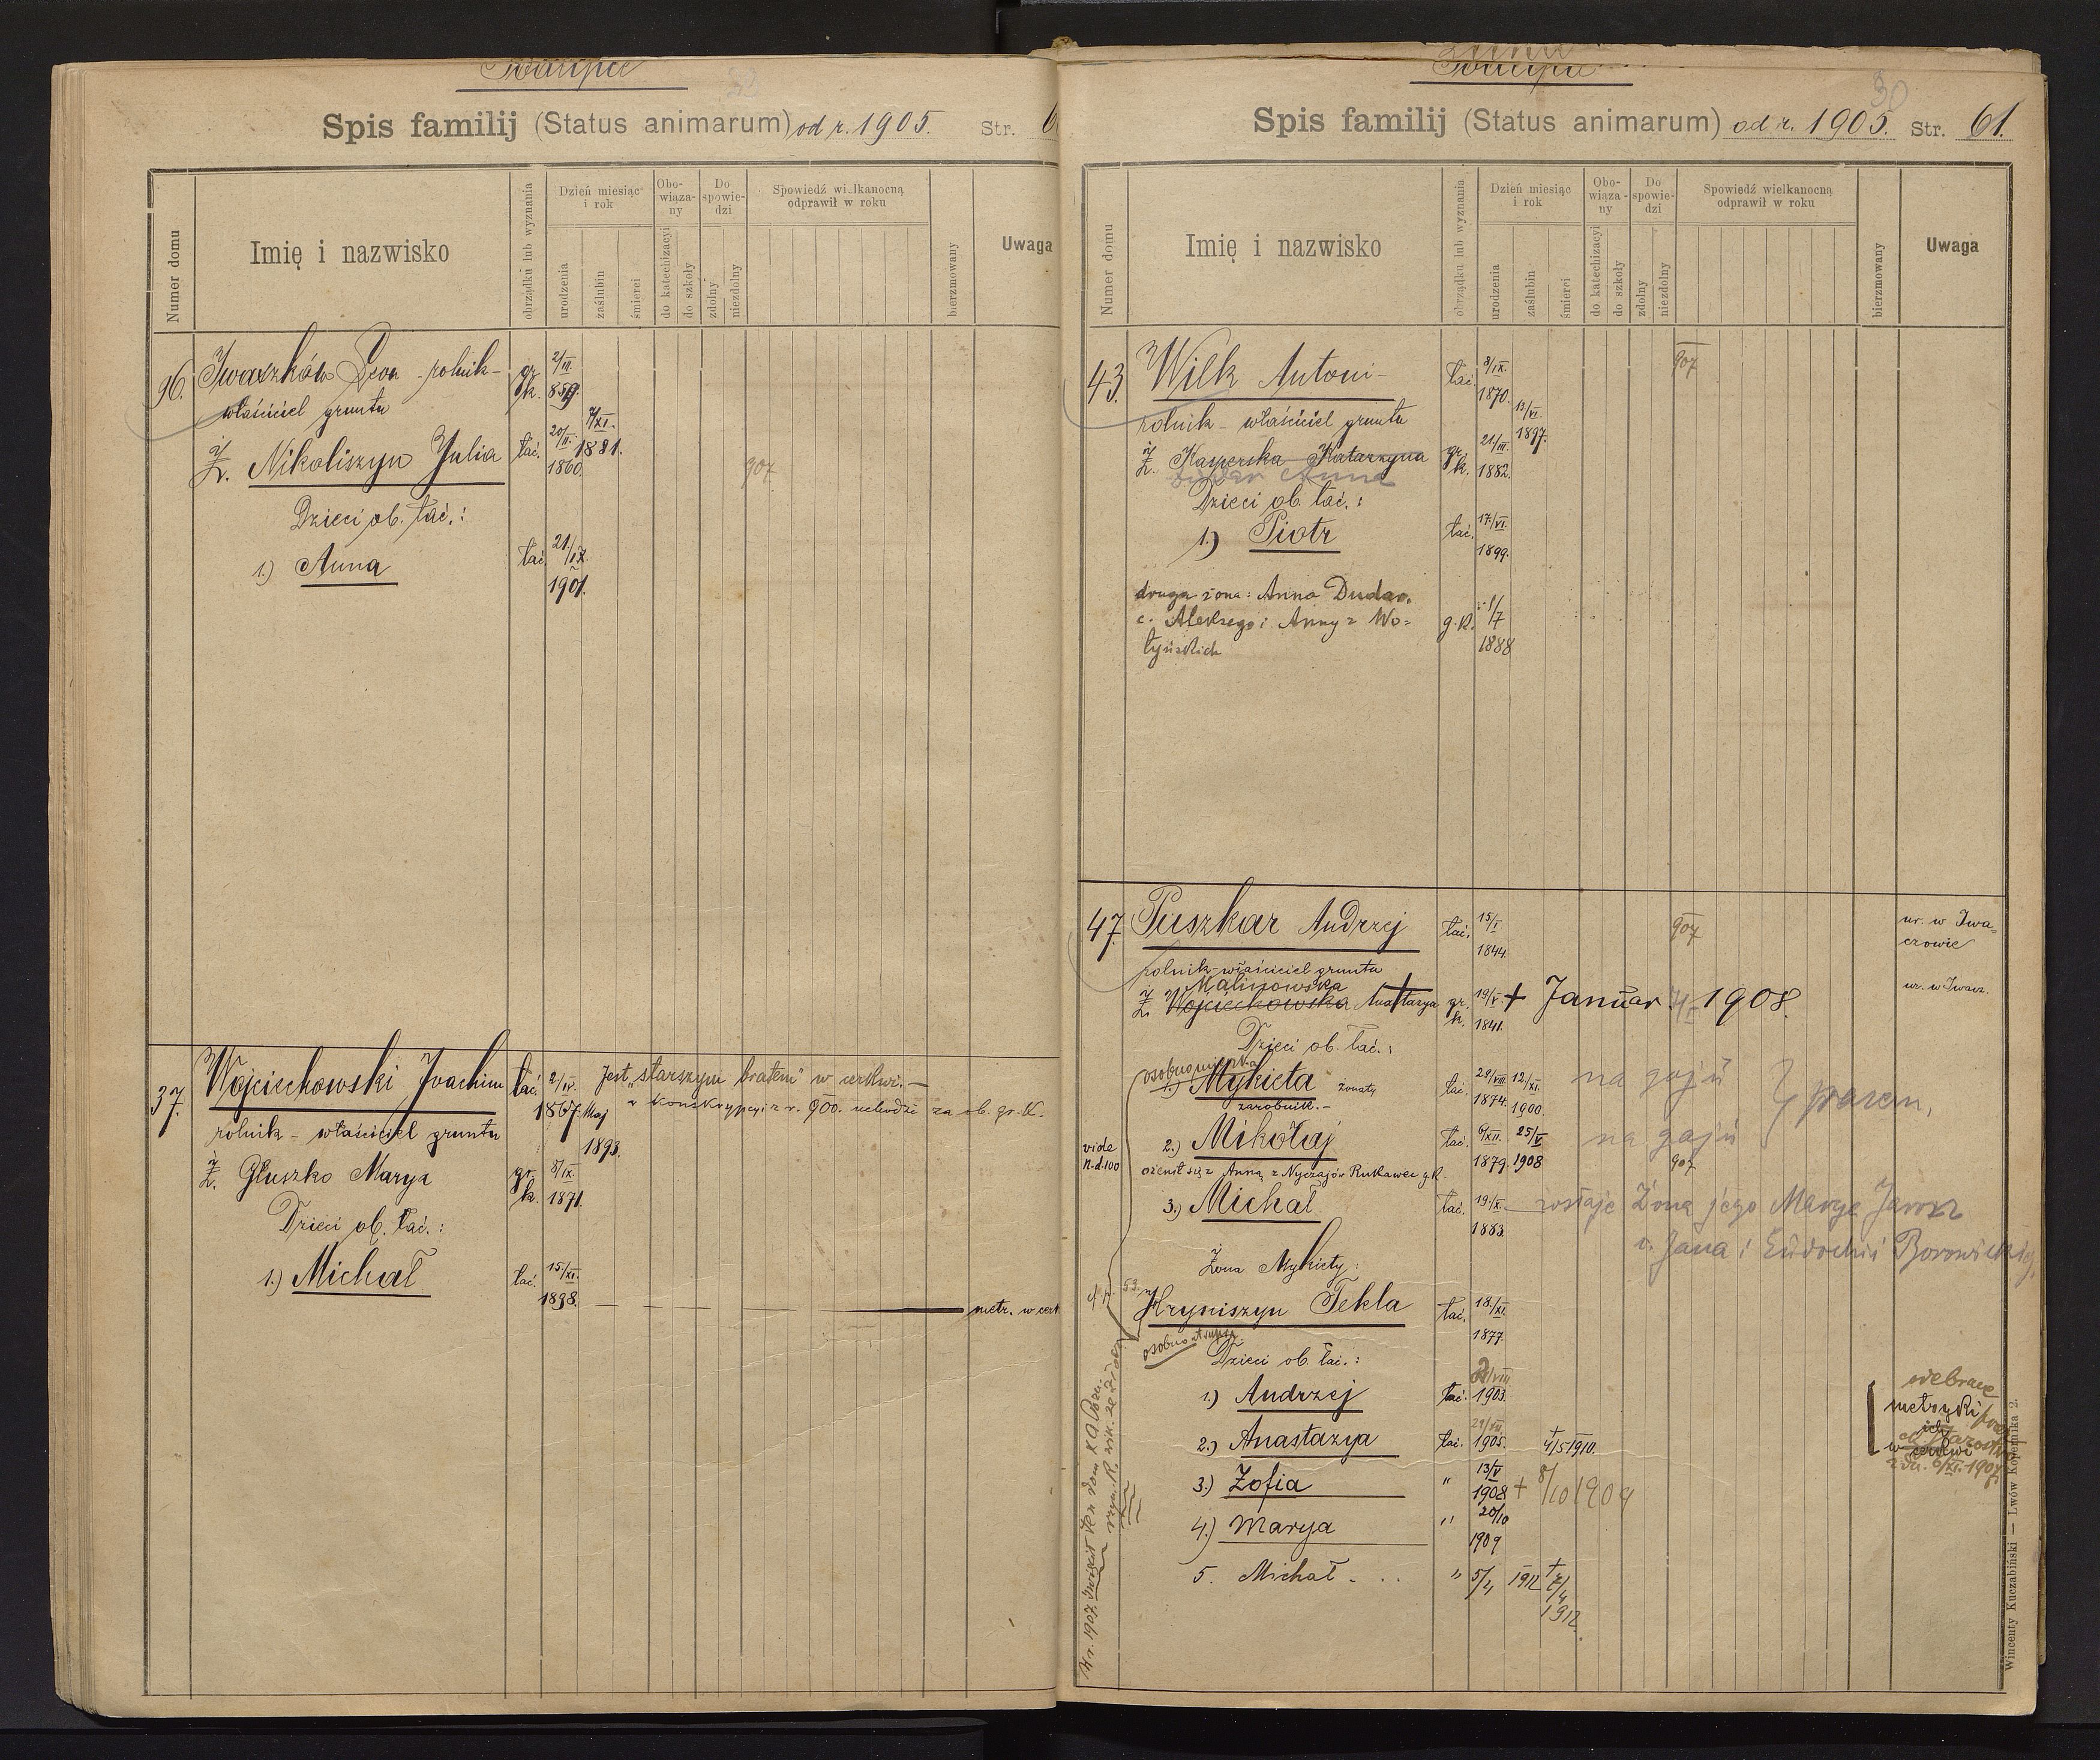 Spis familij (Status animarum) od r. 1905. Str. 6
Numer domu
Imię i nazwisko
obrządku lub wyznania
Dzień miesiąc i rok
urodzenia
zaślubin
śmierci
Obo-wiąza-ny
do katechizacyi
do szkoły
Do spowie-dzi
zdolny
niezdolny
Spowiedź wielkanocną odprawił w roku
bierzmowany
Uwaga
96. Iwaszków Leon - rolnik - gr. k. 2/III. 859.
właściciel gruntu
7/XI. 1881.
Ż. Nikoliszyn Julia łać. 20/II. 1860. 907
Dzieci ob. łać.:
1.) Anna łać. 21/IX. 1901.
37. Wojciechowski Joachim łać. 2/IV. 1867. Maj 1893.
Jest "starszym bratem" w cerkwi. —
w konskrypcyi z r. 900. uchodzi za ob. gr. k.
rolnik - właściciel gruntu
Ż. Głuszko Marya gr. k. 8/IX. 1871.
Dzieci ob. łać.:
1.) Michał łać. 15/XI. 1898. — metr. w cerk
Spis familij (Status animarum) od r. 1905. Str. 61.
30
Numer domu
Imię i nazwisko
obrządku lub wyznania
Dzień miesiąc i rok
urodzenia
zaślubin
śmierci
Obo-wiąza-ny
do katechizacyi
do szkoły
Do spowie-dzi
zdolny
niezdolny
Spowiedź wielkanocną odprawił w roku
bierzmowany
Uwaga
43. Wilk Antoni - łać. 8/IX. 1870. 907
13/VI. 1897.
rolnik - właściciel gruntu
Ż. Kasperska Katarzyna gr. k. 21/III. 1882.
Dudar Anna
Dzieci ob. łać.:
1.) Piotr łać. 17/VI. 1899.
druga żona: Anna Dudar.
c. Aleksego i Anny z Wo=
łyńskich g. k. 1/7 1888
47. Puszkar Andrzej łać. 15/I. 1844. 907 ur. w Iwa=
czowie
rolnik - właściciel gruntu
Malinowska
Ż. Wojciechowska Anastazya gr. k. 19/V. 1841. + Januar 1908. ur. w Iwacz.
Dzieci ob. łać.:
1.) Mykieta żonaty łać. 1874. 12/XI. 1900. na gaju
zarobnik. -
2.) Mikołaj łać. 6/XII. 1879. 25/V 1908 na gaju 907
vide n.d. 100
ożenił się z Anną z Nyczajów Rutkawec g.k.
3.) Michał łać. 19/X. 1883. żona jego Marya
c. Jana i Eudochii
Żona Mykiety:
Hryniszyn Tekla łać. 18/XI. 1877.
Dzieci ob. łać.:
1.) Andrzej łać. 1903.
2.) Anastazya łać. 1905. + 4/5 1910.
3.) Zofia " 13/V 1908 + 8/10 1909
4.) Marya " 20/10 1909
5. Michał " 5/4 1912 + 1912.
metryki
w cerkwi
Wincenty Kuczabiński — Lwów Kopernika 2.